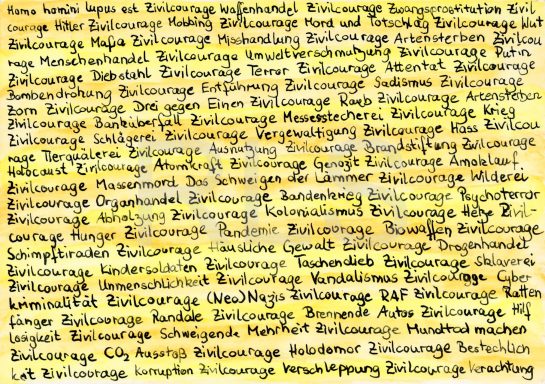 Homo homini lupus est Zivilcourage Waffenhandel Zivilcourage Zwangsprostitution Zivil
courage Hitler Zivilcourage Mobbing Zivilcourage Mord und Totschlag Zivilcourage Wut
Zivilcourage Mafia Zivilcourage Misshandlung Zivilcourage Artensterben Zivilcou
rage Menschenhandel Zivilcourage Umweltverschmutzung Zivilcourage Putin
Zivilcourage Diebstahl Zivilcourage Terror Zivilcourage Attentat Zivilcourage
Bombendrohung Zivilcourage Entführung Zivilcourage Sadismus Zivilcourage
Zorn Zivilcourage Drei gegen Einen Zivilcourage Raub Zivilcourage Artensterben
Zivilcourage Banküberfall Zivilcourage Messerstecherei Zivilcourage Krieg
Zivilcourage Schlägerei Zivilcourage Vergewaltigung Zivilcourage Hass Zivilcou
rage Tierquälerei Zivilcourage Ausnutzung Zivilcourage Brandstiftung Zivilcourage
Holocaust Zivilcourage Atomkraft Zivilcourage Genozit Zivilcourage Amoklauf
Zivilcourage Massenmord Das Schweigen der Lämmer Zivilcourage Wilderei
Zivilcourage Organhandel Zivilcourage Bandenkrieg Zivilcourage Psychoterror
Zivilcourage Abholzung Zivilcourage Kolonialismus Zivilcourage Hetze Zivil-
courage Hunger Zivilcourage Pandemie Zivilcourage Biowaffen Zivilcourage
Schimpftiraden Zivilcourage Häusliche Gewalt Zivilcourage Drogenhandel
Zivilcourage Kindersoldaten Zivilcourage Taschendieb Zivilcourage Sklaverei
Zivilcourage Unmenschlichkeit Zivilcourage Vandalismus Zivilcourage Cyber
kriminalität Zivilcourage (Neo)Nazis Zivilcourage RAF Zivilcourage Ratten
fänger Zivilcourage Randale Zivilcourage Brennende Autos Zivilcourage Hilf
losigkeit Zivilcourage Schweigende Mehrheit Zivilcourage Mundtod machen
Zivilcourage CO₂ Ausstoß Zivilcourage Holodomor Zivilcourage Bestechlich
keit Zivilcourage Korruption Zivilcourage Verschleppung Zivilcourage Verachtung